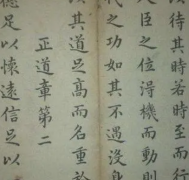 以待其時若時至而行
人臣之位得機而動則
代之功如其不遇沒身
其道足高而名重於
正道章第二
德足以懷遠信足以